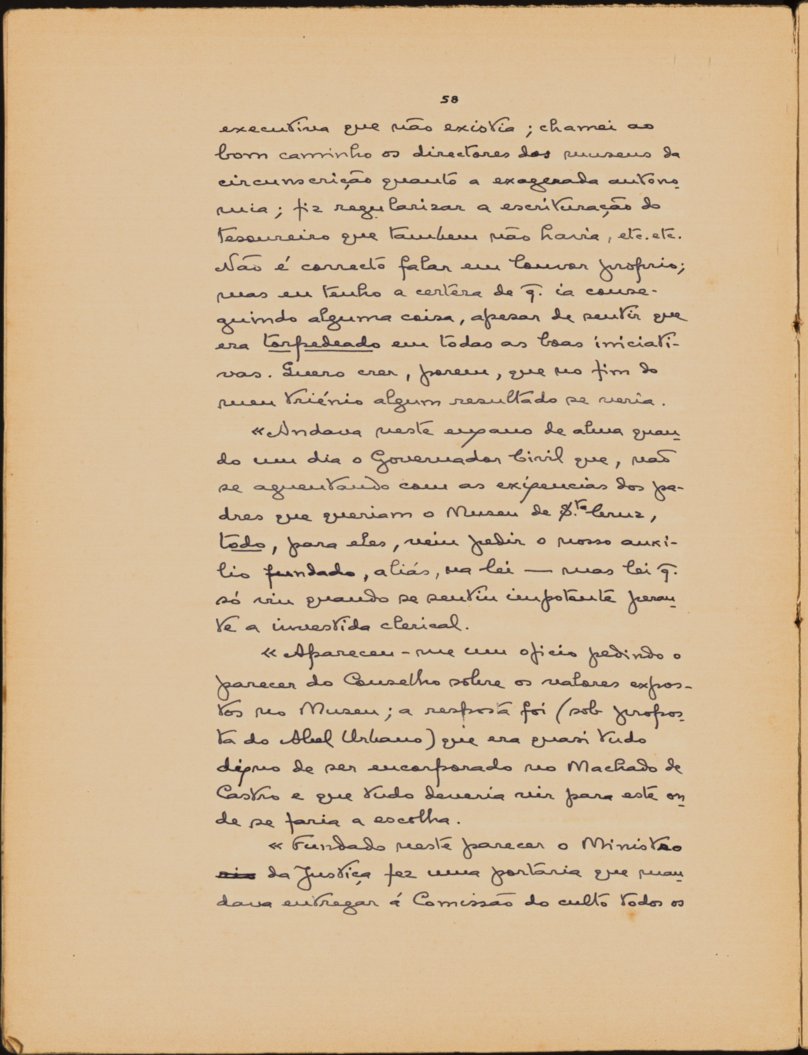 58
executiva que não existia; chamei ao
bom caminho os directores dos museus da
circunscrição quanto a exagerada autono-
mia; fiz regularizar a escrituração do
tesoureiro que tambem não havia, etc. etc.
Não é correcto falar em louvor proprio;
mas eu tenho a certeza de q. ia conse-
guindo alguma coisa, apesar de sentir que
era torpedeado em todas as boas iniciati-
vas. Quero crer, porem, que no fim do
meu triénio algum resultado se veria.
«Andava neste engano de alma quan-
do um dia o Governador Civil que, não
se aguentando com as exigencias dos pa-
dres que queriam o Museu de S.ta Cruz,
todo, para eles, veiu pedir o nosso auxi-
lio fundado, aliás, na lei — mas lei q.
só viu quando se sentiu impotente peran-
te a investida clerical.
«Apareceu-me um oficio pedindo o
parecer do Conselho sobre os valores expos-
tos no Museu; a resposta foi (sob propos-
ta do Abel Urbano) que era quasi tudo
digno de ser encorporado no Machado de
Castro e que tudo deveria vir para este on-
de se faria a escolha.
«Fundado neste parecer o Ministro
da Justiça fez uma portaria que man-
dava entregar á Comissão do culto todos os